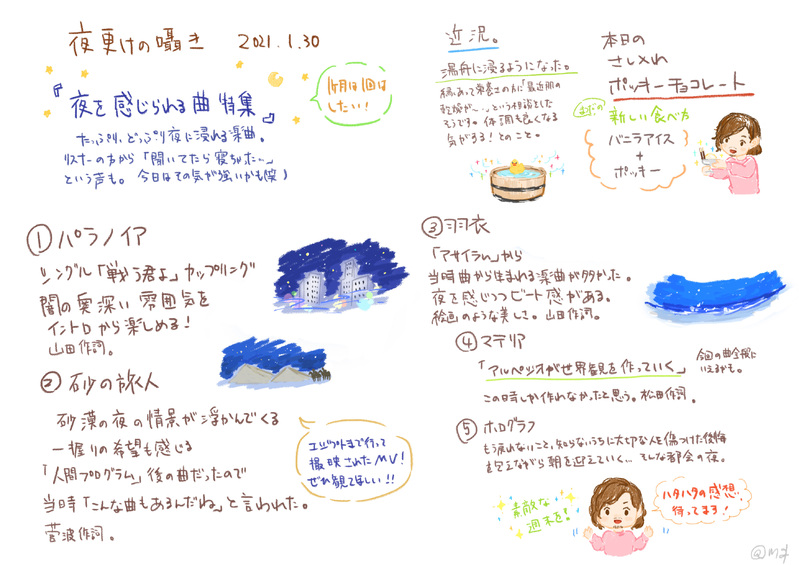 夜更けの囁き 2021.1.30
『夜を感じられる曲 特集』
1ヶ月に1回は
したい!
たっぷり、どっぷり夜に浸れる楽曲。
リスナーの方から「聞いてたら寝ちゃった…」
という声も。今日はその気が強いかも(笑)
① パラノイア
シングル「戦う君よ」カップリング
闇の奥深い雰囲気を
イントロから楽しめる!
山田作詞。
② 砂の旅人
砂漠の夜の情景が浮かんでくる
一握りの希望も感じる
「人間プログラム」後の曲だったので
当時「こんな曲もあるんだね」と言われた。
菅波作詞。
エジプトまで行って
撮映されたMV!
ぜひ観てほしい!!
近況。
湯舟に浸るようになった。
体調も良くなる
気がする!とのこと。
本日の
さしメれ
ポッキーチョコレート
新しい食べ方
バニラアイス
+
ポッキー
③ 羽衣
「アサイラム」から
当時曲から生まれる楽曲が多かった。
夜を感じつつビート感がある。
絵画のような美しさ。山田作詞。
④ マテリア
「アルペジオが世界観を作っていく」
今回の曲全般に
いえるかも。
この時しか作れなかったと思う。松田作詞。
⑤ ホログラフ
もう戻れないこと、知らないうちに大切な人を傷つけた後悔
を抱えながら朝を迎えていく… そんな都会の夜。
素敵な
週末を!
ハタハタの感想
待ってまる!